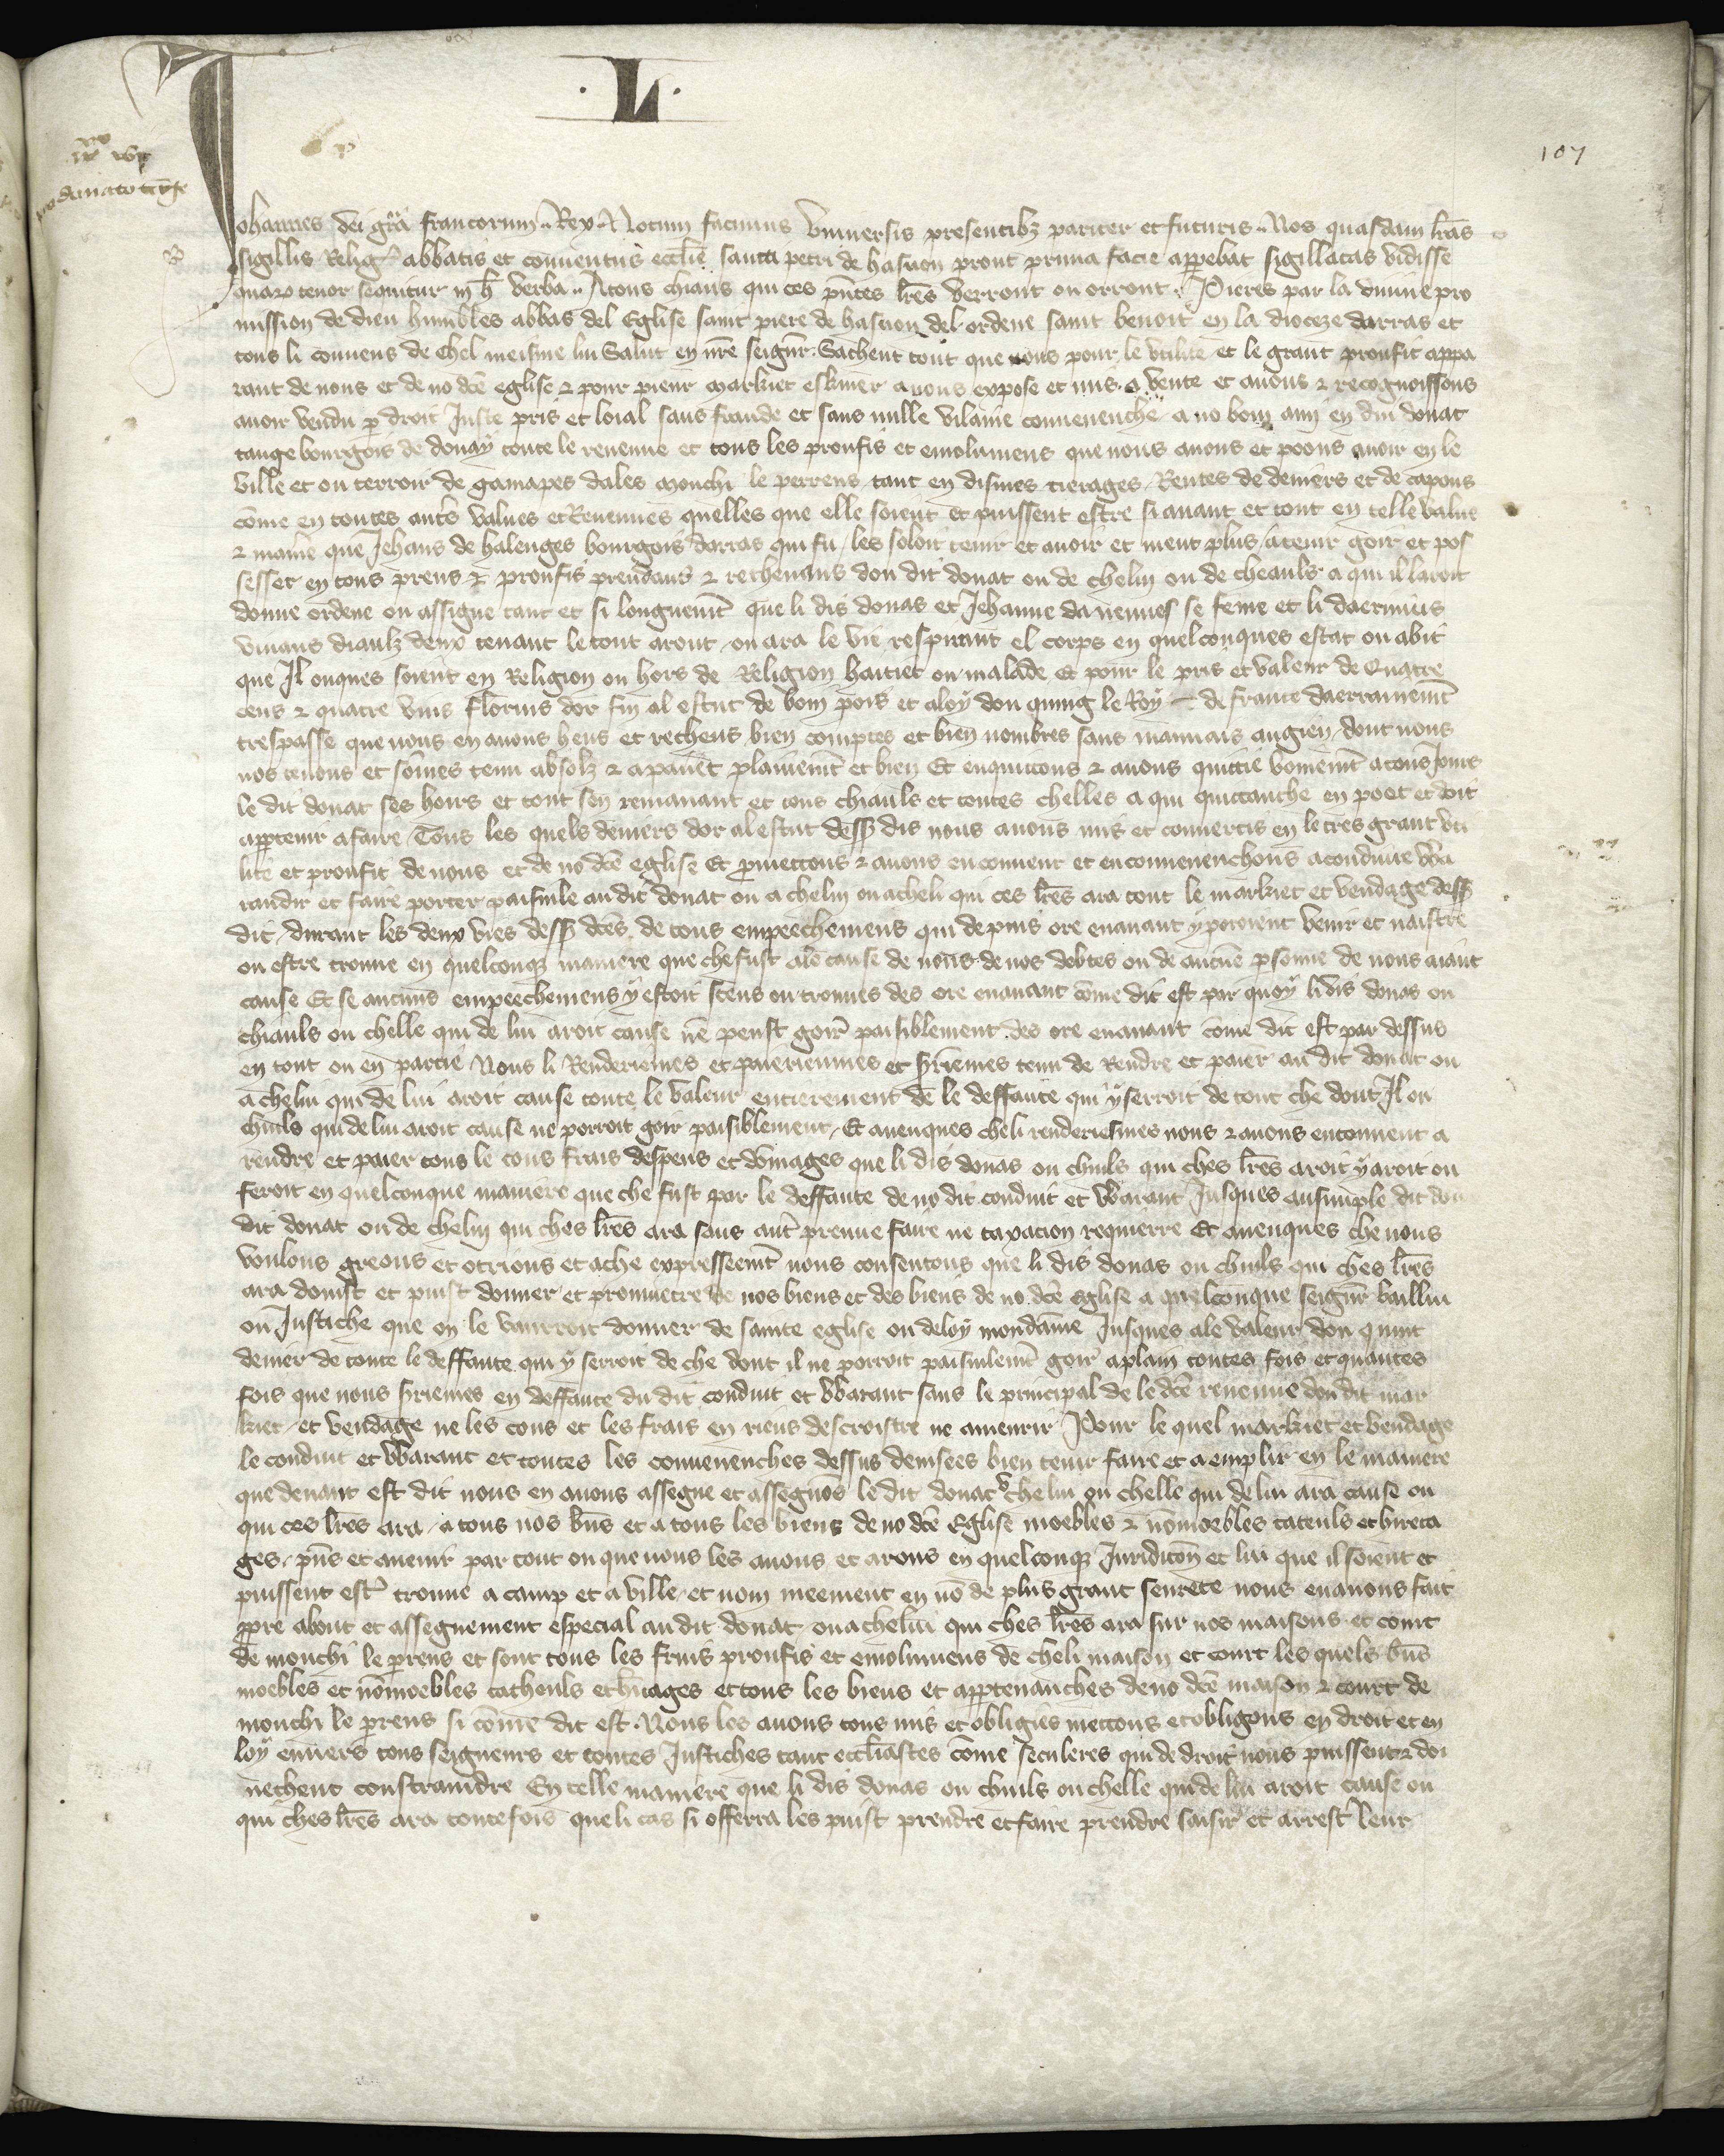 .L.
107
Johannes dei gra francorum Rex Notum facimus Universis presentibz pariter et futuris Nos quasdam lras
sigillis Relig abbatis et conventus ecclie sancti petri de hasnon prout prima facie apparebat sigillatas vidisse
quarum tenor sequitur in h verba Atous chiaus qui ces pntes lres verront ou orront Pieres par la divine pro
mission de dieu humbles abbas del Eglise saint piere de hasnon del ordene saint benoit en la dioceze darras et
tous li convens de chel meisme liu Salut en nre seignr Sachent tout que nous pour le utilite et le grant proufit appa
rant de nous et de no dce eglise & pour pieur markiet eskiuer avons expose et mis a vente et avons & recognoissons
avoir vendu p droit Juste pris et loial sans fraude et sans nulle vilaine convenenche a no boin ami en diu donat
tauge bourgois de douay toute le revenue et tous les proufis et emolumens que nous avons et poons avoir en le
ville et ou terroir de gamapes dales monchi le perreus tant en dismes tierages Rentes de deniers et de capons
come en toutes autes values et Revenues quelles que elle soient et puissent estre si avant et tout en telle value
& manie que Jehans de halenges bourgois darras qui fu les soloit tenir et avoir et nient plus a tenir goir et pos
sesser en tous preus & proufis prendans & rechevans dou dit donat ou de chelui ou de cheauls a qui il laroit
donne ordene ou assigne tant et si longuemt que li dis donas et Jehanne davennes se feme et li daerrains
vivans diaulz deux tenant le tout aront ou ara le vie respirant el corps en quelconques estat ou abit
que Il onques soient en Religion ou hors de Religion haitiet ou malade Et pour le pris et valeur de Quatre
cens & quatre vins florins dor fin al escut de boin pois et aloy dou quing le Roy de france daerrainemt
trespasse que nous en avons heus et recheus bien comptes et bien nombres sans mauvais engien dont nous
nos tenons et somes tenu absolz & apaiiet plainemt et bien Et enquittons & avons quittie boinemt a tous Jours
le dit donat ses hoirs et tout sen remanant et tous chiauls et toutes chelles a qui quittanche en poet et doit
apptenir a faire Tous les quels deniers dor al escut dess dis nous avons mis et convertis en le tres grant uti
lite et proufit de nous et de no dce eglise Et pmettons & avons enconvent et enconvenenchons a conduire Wa
randir et faire porter paisiule au dit donat ou a chelui ou a cheli qui ces lres ara tout le markiet et vendage dess
dit durant les deux vies dess dces de tous empeechemens qui depuis ore enavant y poroient venir et naistre
ou estre trouve en quelconqz maniere que che fust a le cause de nous de nos debtes ou de aucune psonne de nous aiant
cause Et se aucuns empeechemens y estoit sceus ou trouves des ore enavant come dit est par quoy li dis donas ou
chiauls ou chelle qui de lui aroit cause ne peust goir paisiblement des ore enavant come dit est par dessus
en tout ou en partie Nous li Renderiemes et paieriemes et seriemes tenu de Rendre et paier au dit donat ou
a chelui qui de lui aroit cause toute le valeur entierement de le deffaute qui y serroit de tout che dont Il ou
chiuls qui de lui aroit cause ne porroit goir paisiblement Et avenques cheli renderiesmes nous & avons enconvent a
rendre et paier tous le cous frais despens et domages que li dis donas ou chiuls qui ches lres aroit y aroit ou
feroit en quelconque maniere que che fust par le deffaute de no dit conduit et Warant Jusques au simple dit dou
dit donat ou de chelui qui ches lres ara sans aute preuve faire ne taxacion requierre Et avenques che nous
voulons greons et otrions et a che expresseemt nous consentons que li dis donas ou chiuls qui ches lres
ara doinst et puist donner et prometre de nos biens et des biens de no dce eglise a quelconque seignr baillui
ou Justiche que on le vaurroit donner de sainte eglise ou de loy mondaine Jusques a le valeur dou quint
denier de toute le deffaute qui y serroit de che dont il ne porroit paisiulemt goir a plain toutes fois et quantes
fois que nous seriemes en deffaute du dit conduit et Warant sans le principal de le dce revenue dou dit mar
kiet et vendage ne les cous et les frais en riens descroistre ne amenrir Pour le quel markiet et vendage
le conduit et Warant et toutes les convenenches dessus devisees bien tenir faire et aemplir en le maniere
que devant est dit nous en avons assegne et assegnons le dit donat & chelui ou chelle qui de lui ara cause ou
qui ces lres ara a tous nos bns et a tous les biens de no dce Eglise moebles & nonmoebles cateuls et hireta
ges pns et avenir par tout ou que nous les avons et arons en quelconqz Juridicon et liu que il soient et
puissent estre trouve a camp et a ville et nom meement en no de plus grant seurete nous en avons fait
ppre about et assegnement especial au dit donat ou a chelui qui ches lres ara sur nos maisons et court
de monchi le preus et sont tous les fruis proufis et emolumens de cheli maison et court les quels bns
moebles et nonmoebles catheuls et hritages et tous les biens et apptenanches de no dce maison & court de
monchi le preus si come dit est Nous les avons tous mis et obligies mettons et obligons en droit et en
loy envers tous seigneurs et toutes Justiches tant eccliastes come seculeres qui de droit nous puissent & doi
vechent constraindre En telle maniere que li dis donas ou chiuls ou chelle qui de lui aroit cause ou
qui ches lres ara toutefois que li cas si offerra les puist prendre et faire prendre saisir et arrester leur